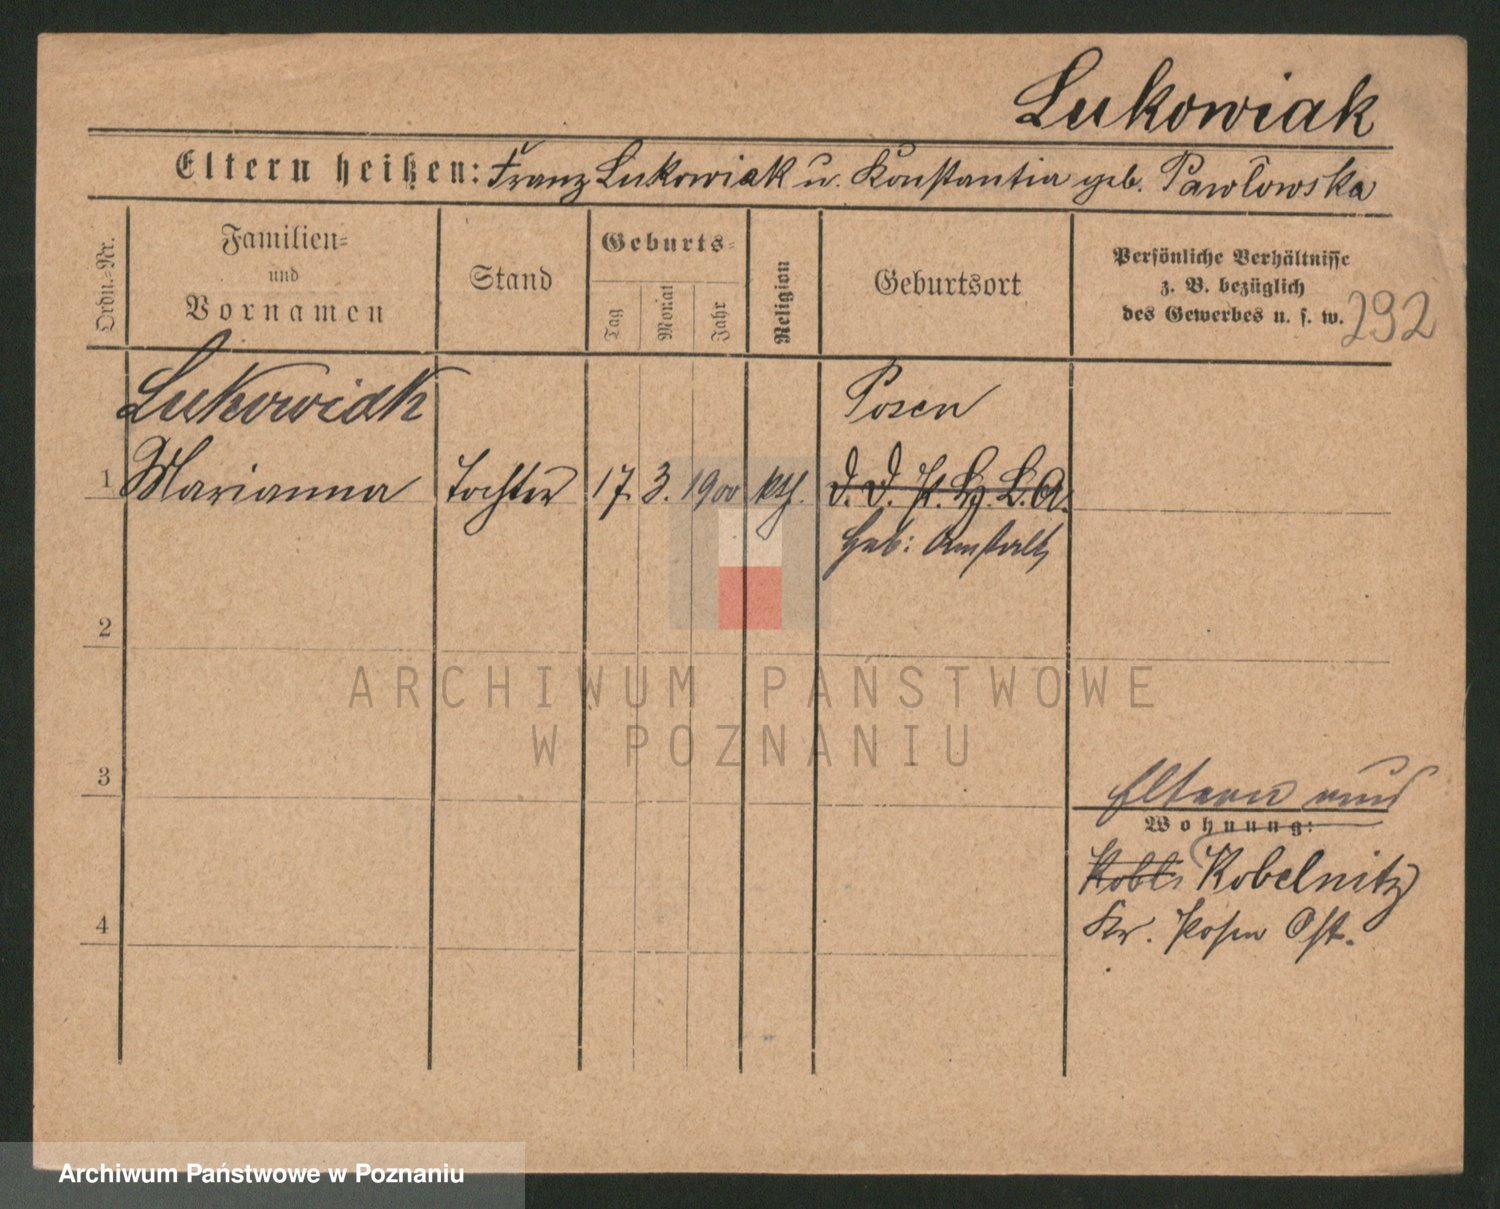 Lukowiak
Eltern heißen: Franz Lukowiak u. Konstantia geb. Pawlowska
Ordn.=Nr.
Familien=
und
Vornamen
Stand
Geburts=
Tag
Monat
Jahr
Religion
Geburtsort
Persönliche Verhältnisse
z. B. bezüglich
des Gewerbes u. s. w.
292
Lukowiak
Posen
1 Marianna Tochter 17. 3. 1900 kth.
Geb: Anstalt
2
3
Eltern
Wohnung:
Kobelnitz
4
Kr. Posen Ost.
ARCHIWUM PAŃSTWOWE
W POZNANIU
Archiwum Państwowe w Poznaniu